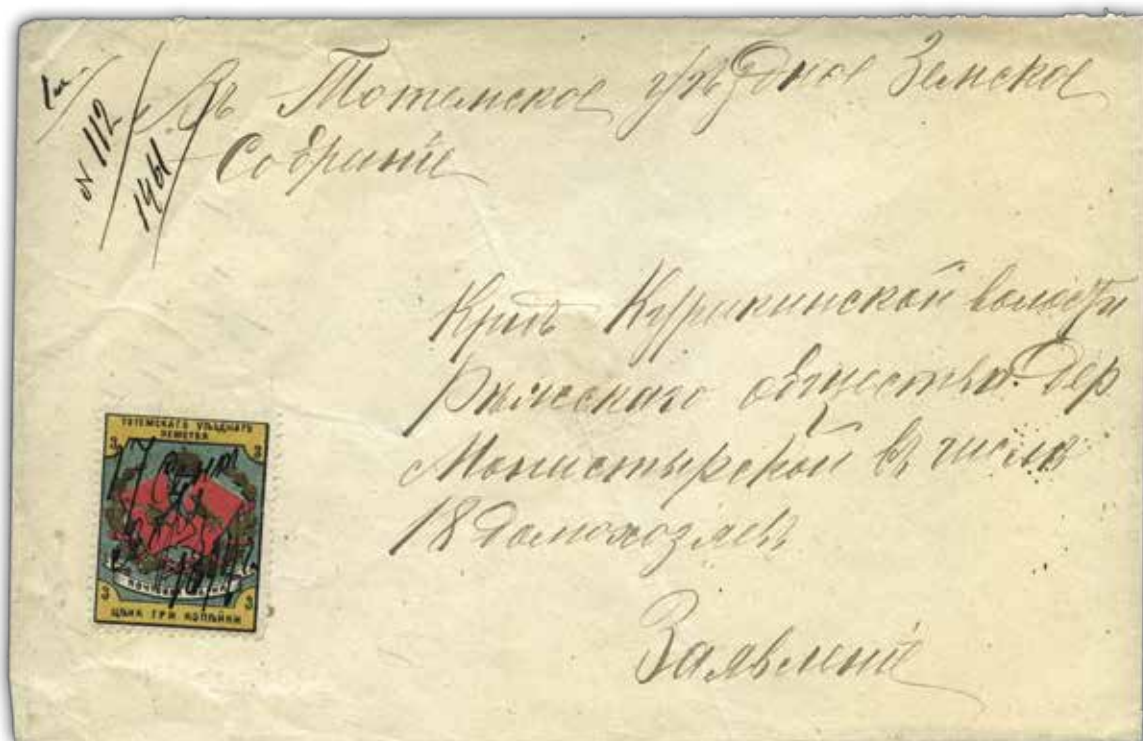 № 112
1461
Въ Тотемское уѣздное Земское
Собрание
Крить Куракинской волости
общества Дер
Монастырской въ числѣ
18 домохозяевъ
Заявление
ТОТЕМСКАГО УѢЗДНАГО
ЗЕМСТВА
3 3
3 3
ЦѢНА ТРИ КОПѢЙКИ